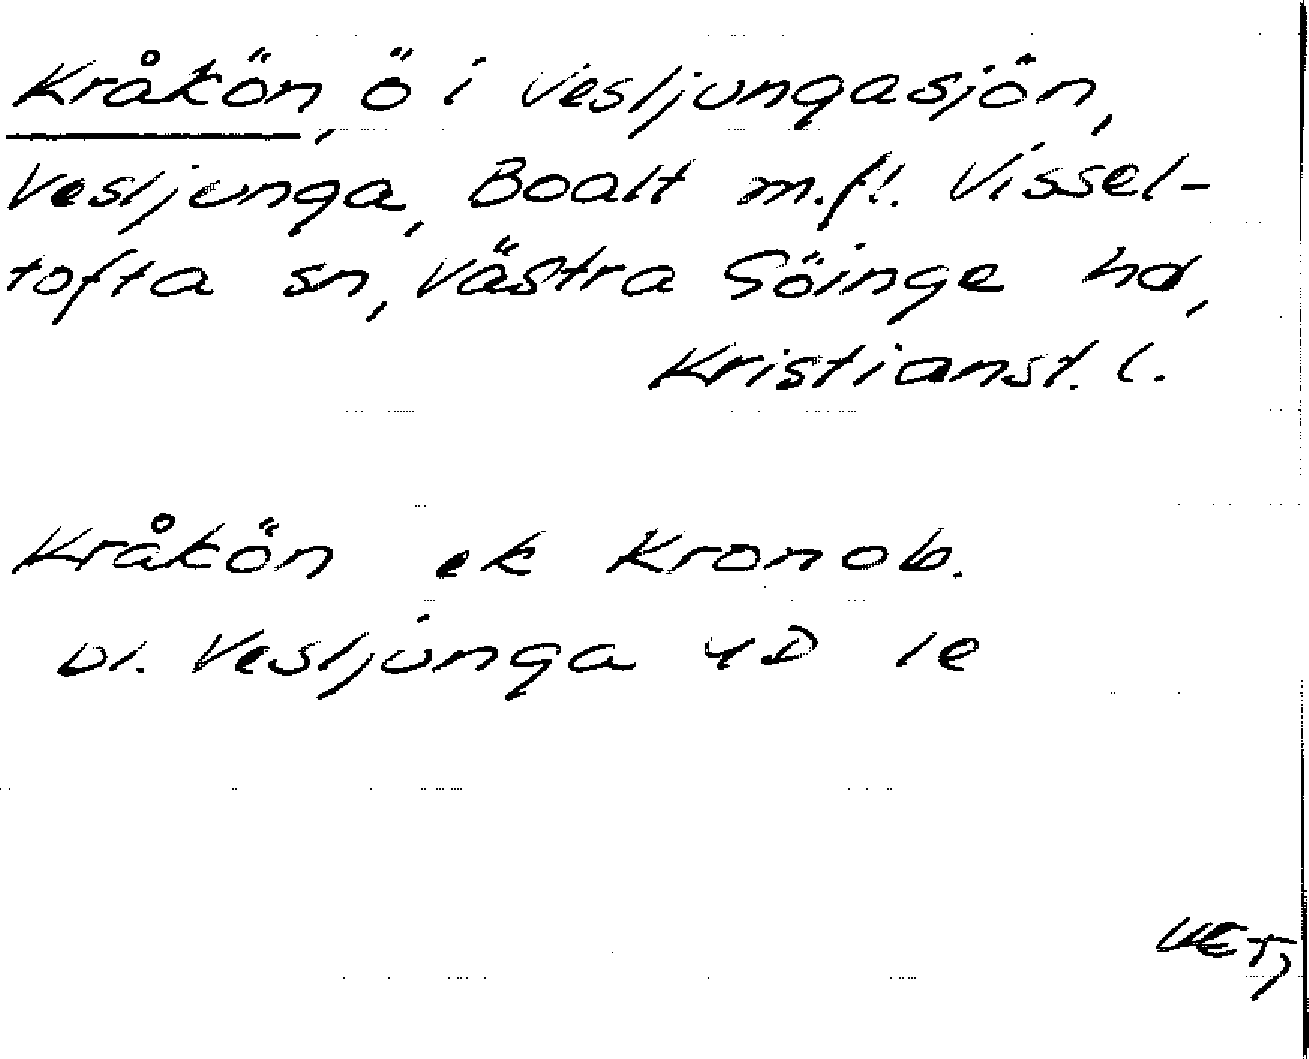 Kråkön, ö i Vesljungasjön,
Vesljunga, Boalt m.fl. Vissel-
tofta sn, Västra Göinge hd,
Kristianst. l.
Kråkön ek Kronob.
bl. Vesljunga 4D 1e